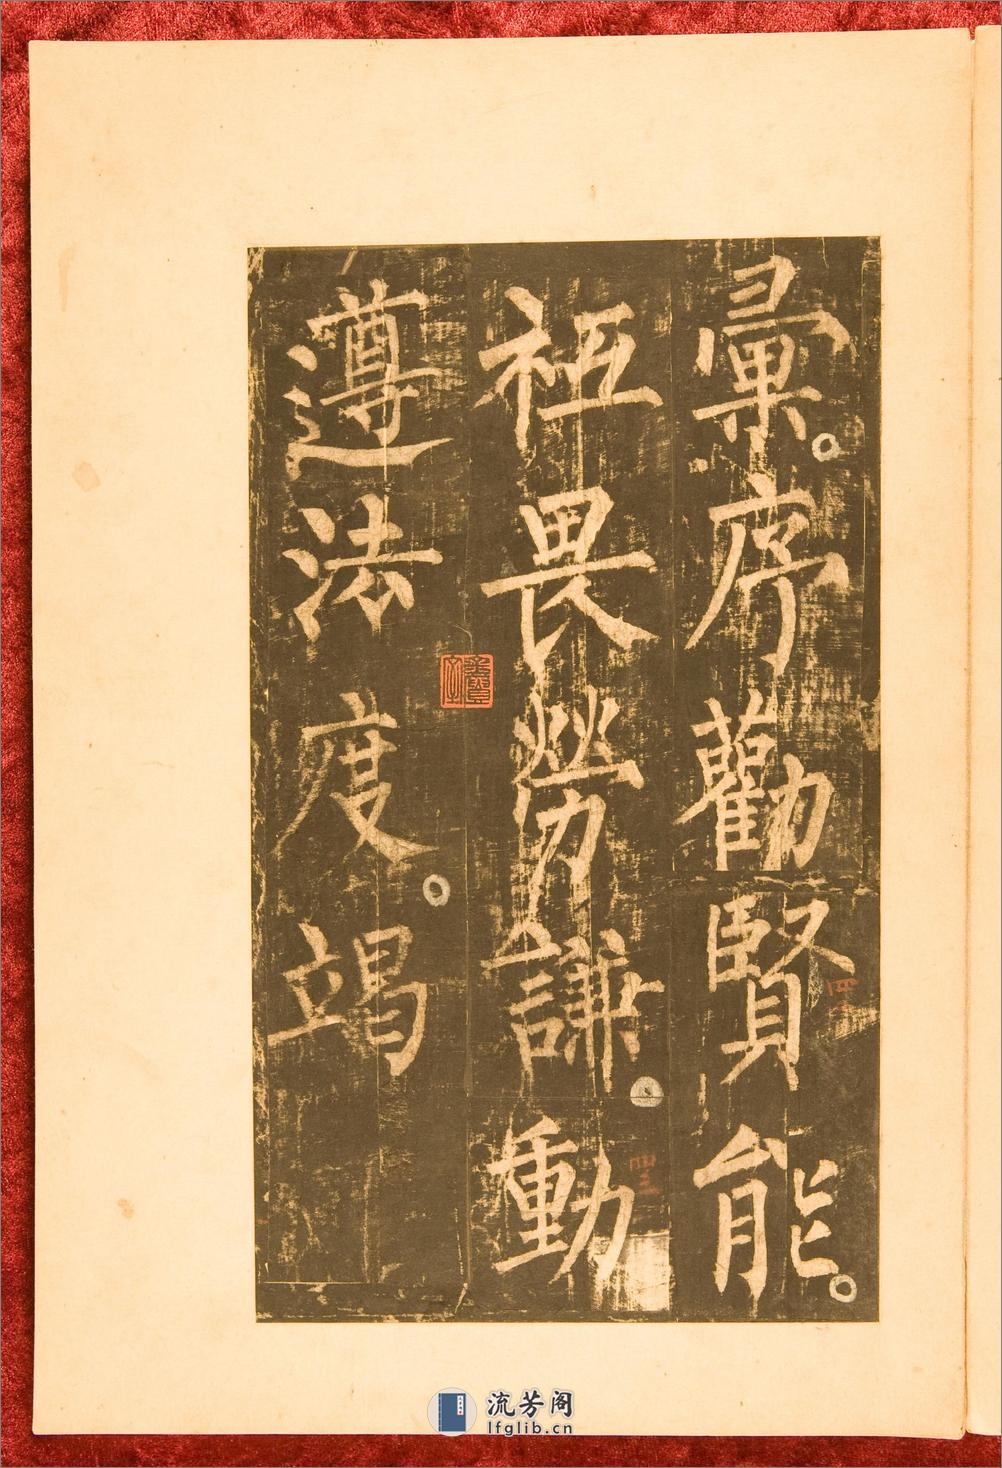 彙序勸賢能
祗畏勞謙動
遵法度竭
流芳阁
lfglib.cn